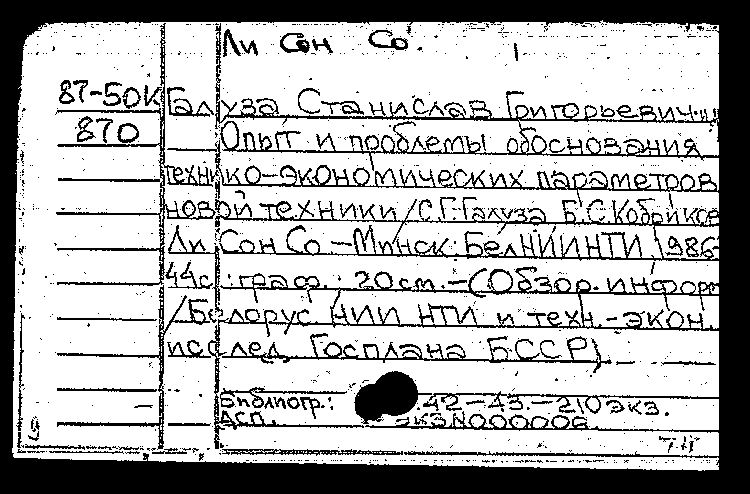 Ли Сон Со.
87-50К Галуза, Станислав Григорьевич
870 Опыт и проблемы обоснования
технико-экономических параметров
новой техники/С.Г.Галуза Б.С.Кобрико
Ли Сон Со-Минск:БелНИИНТИ, 1986-
44с.:граф.; 20см.-(Обзор.информ
/Белорус НИИ НТИ и техн.-экон.
исслед Госплана БССР)
Библиогр.: 42-43.-210экз.
ДСП. экзN000006.
9